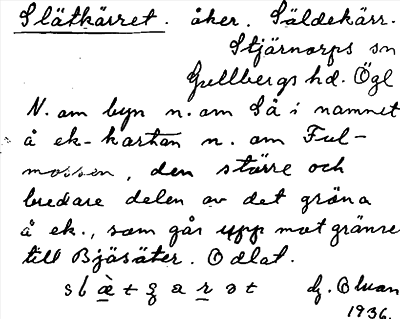 Slätkärret. åker. Säldekärr.
Stjärnorps sn
Gullbergs hd. Ögl
N. om byn n. om Så i namnet
å ek-kartan n. om Ful-
mossen, den större och
bredare delen av det gröna
å ek., som går upp mot gränsen
till Bjäsäter. Odlat.
1936.